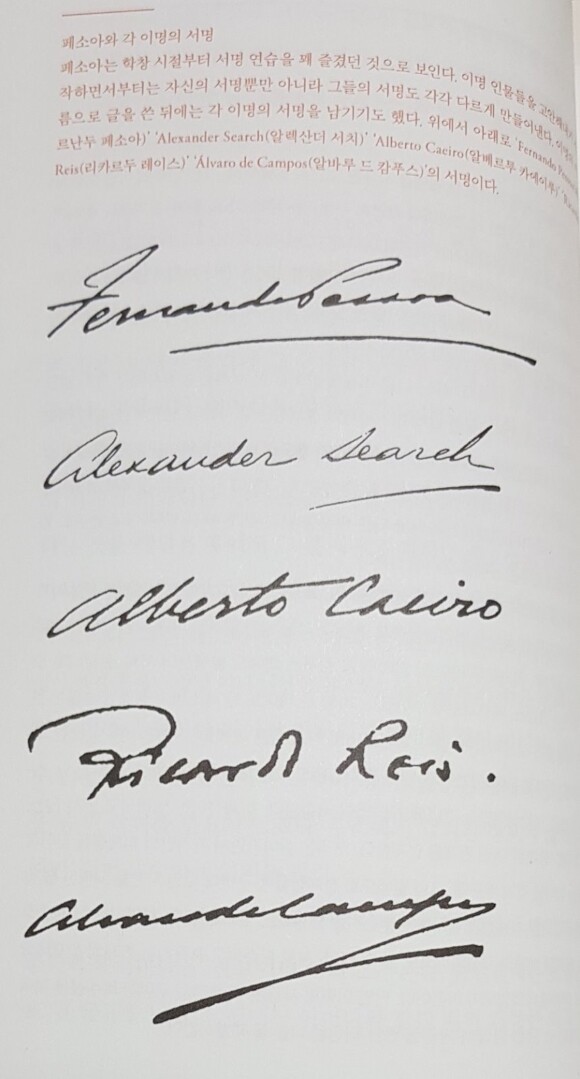 페소아와 각 이명의 서명
페소아는 학창 시절부터 서명 연습을 꽤 즐겼던 것으로 보인다. 이명 인물들을 고안해내기
작하면서부터는 자신의 서명뿐만 아니라 그들의 서명도 각각 다르게 만들어냈다.
름으로 글을 쓴 뒤에는 각 이명의 서명을 남기기도 했다. 위에서 아래로 'Fernando Pessoa
르난두 페소아)' 'Alexander Search(알렉산더 서치)' 'Alberto Caeiro(알베르투 카에이루)'
Reis(리카르두 레이스)' 'Álvaro de Campos(알바루 드 캄푸스)'의 서명이다.
Fernando Pessoa
Alexander Search
Alberto Caeiro
Ricardo Reis.
Alvaro de Campos